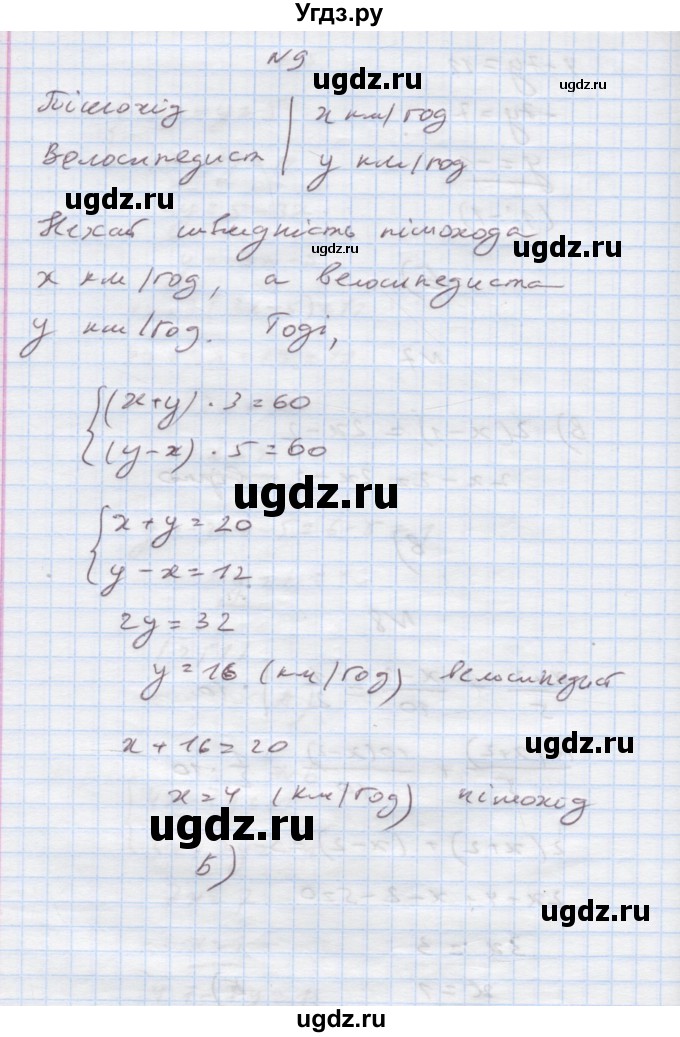 Угдз.ру
N 9
ugdz.ru
ugdz.ru
Пішохід | x км/год
Велосипедист | y км/год
ugdz.ru
ugdz.ru
Нехай швидність пішохода
ugdz.ru
x км/год, а велосипедиста
y км/год. Тоді,
{(x+y) · 3 = 60
(y-x) · 5 = 60
ugdz.ru
{x + y = 20
y - x = 12
2y = 32
y = 16 (км/год) велосипедист
x + 16 = 20
ugdz.ru
x = 4 (км/год) пішоход
ugdz.ru
Б)
ugdz.ru
ugdz.ru